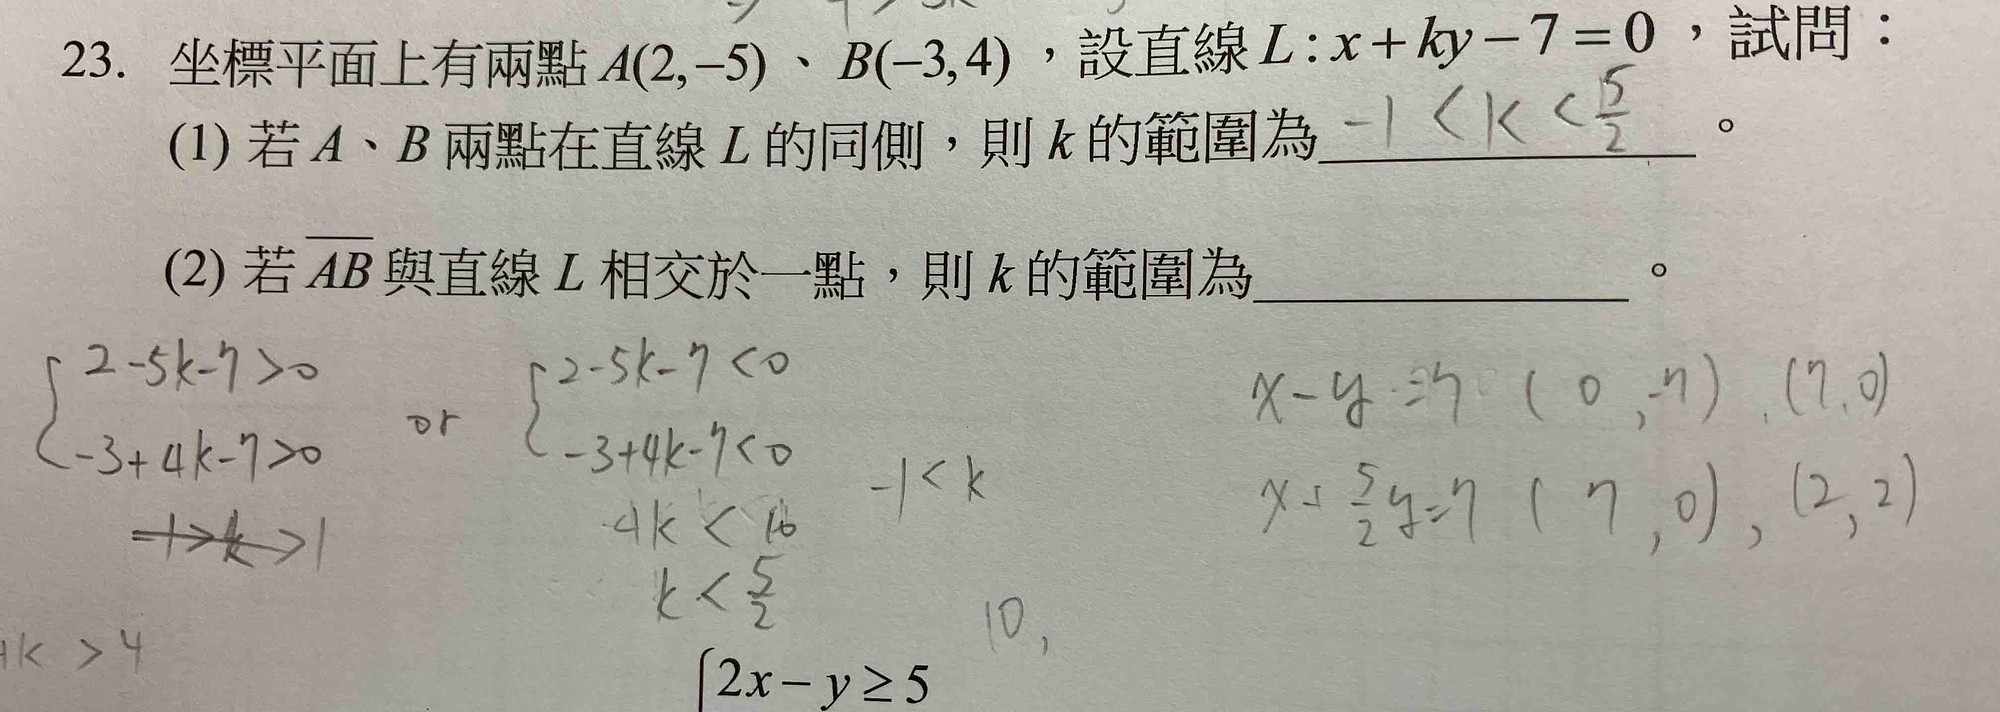 23. 坐標平面上有兩點 A(2,−5)、B(−3,4),設直線 L : x + ky − 7 = 0,試問:
(1) 若 A、B 兩點在直線 L 的同側,則 k 的範圍為 -1 < k < 5/2 。
(2) 若 \overline{AB} 與直線 L 相交於一點,則 k 的範圍為____________。
{ 2-5k-7>0
-3+4k-7>0
-1>k>1
or
{ 2-5k-7<0
-3+4k-7<0
4k < 10
k < 5/2
-1 < k
x-y=7 (0,-7), (7,0)
x+5/2y=7 (7,0), (2,2)
k > 4
10,
{ 2x − y ≥ 5